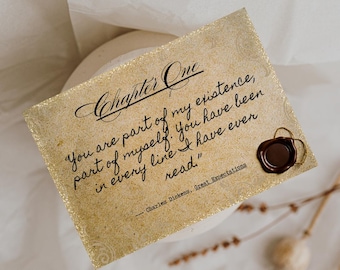 Chapter One
"You are part of my existence,
part of myself. You have been
in every line I have ever
read."
__ Charles Dickens, Great Expectations